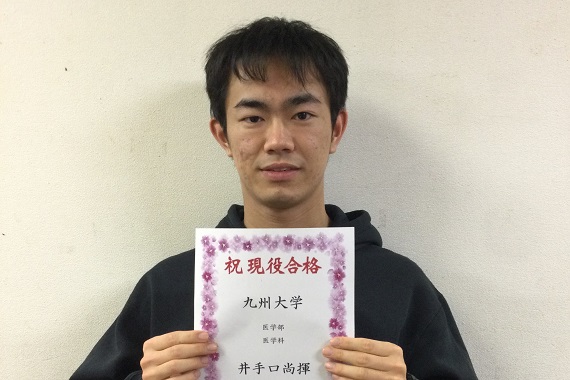 祝 現役合格
九州大学
医学部
医学科
井手口尚揮